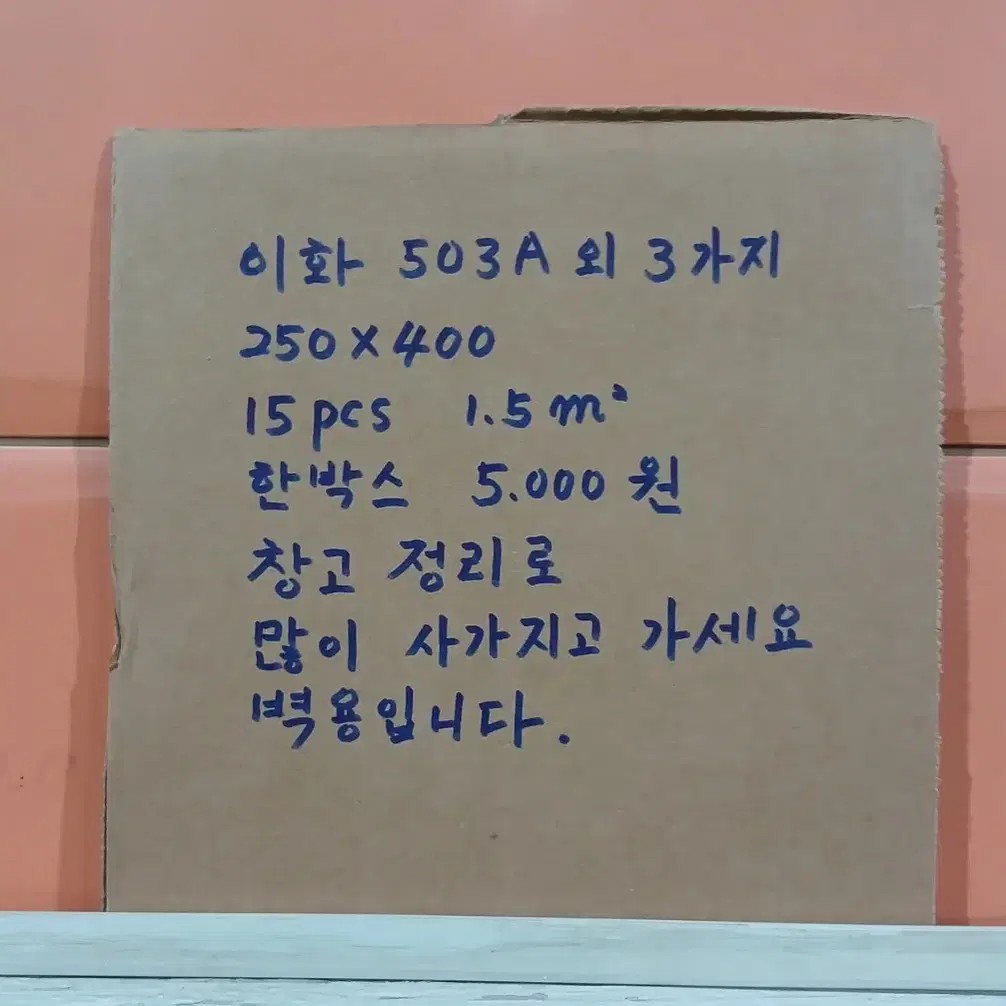 이화 503A 외 3가지
250×400
15pcs 1.5m²
한박스 5.000원
창고 정리로
많이 사가지고 가세요
벽용입니다.